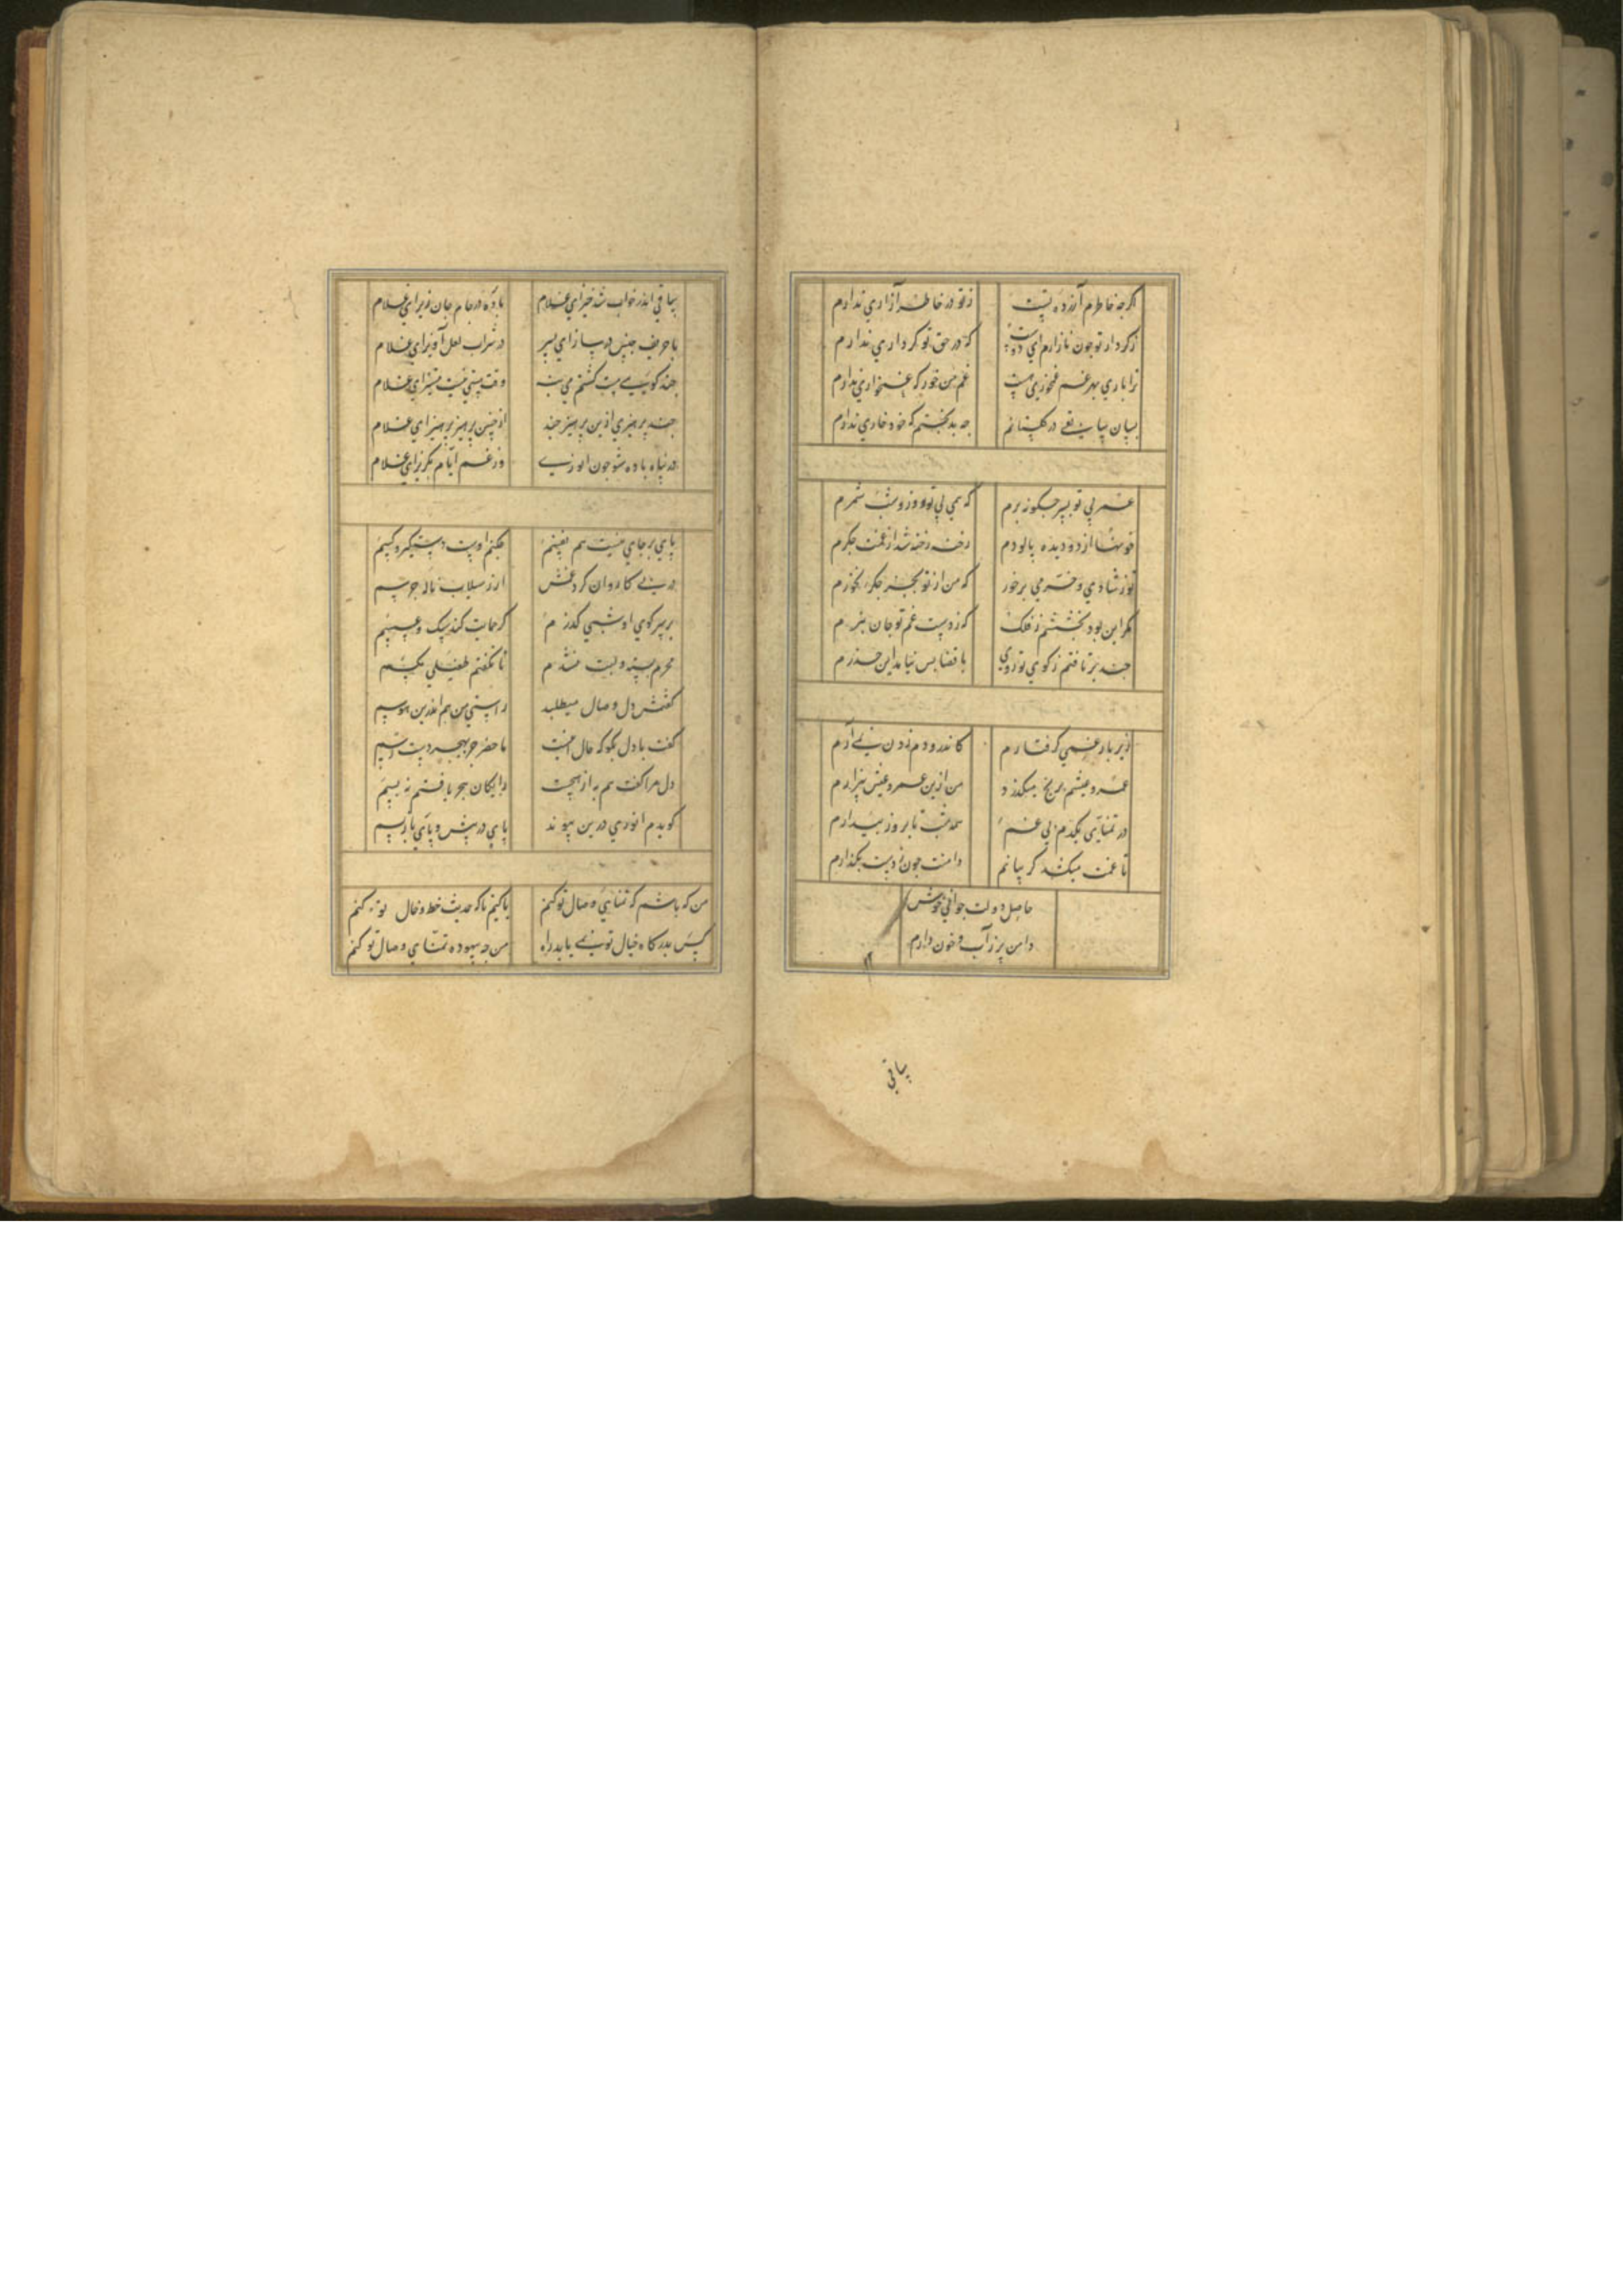 اگرچه خاطرم آزرده تست ز تو در خاطر آزاری ندارم
ز کردار تو چون نازارم ای دوست که در حق تو کرداری ندارم
ترا باری بهر غم غمخوری هست غم من خور که غمخواری ندارم
بسان بیاب در گلستانم چه بدبختم که خود خاری ندارم
عمر بی تو بسر چگونه برم که همی بی تو روز و شب شمرم
خونها از دو دیده پالودم رخنه رخنه شد از غمت جگرم
تو ز شادی و خرمی برخور که من از تو بجز جگر نخورم
مگر این بود بخششم ز فلک که ز دست غم تو جان نبرم
چند برتافتم ز کوی تو روی با قضا بس نیامد این حذرم
زیر بار غمی گرفتارم کاندرو دم زدن نمی آرم
عمر و عیشم برنج میگذرد من ازین عمر و عیش بیزارم
در تمنای یکدم بی غم همه شب تا بروز بیدارم
تا غمت میکشد گریبانم دامنت چون ز دست بگذارم
حاصل دولت جوانی خویش
دامن پر ز آب و خون دارم
ساقی
ساقی اندر خواب شد خیز ای غلام باده در جام جان ریز ای غلام
با حریف جنس در ساز ای پسر در شراب لعل آویز ای غلام
چند گویی مست گشتم می بسست وقت مستی نیست مستیز ای غلام
چند پرهیزی ازین پرهیز چند از چنین پرهیز پرهیز ای غلام
در پناه باده شو چون انوری وز غم ایام بگریز ای غلام
پای بر جای نیست هم نفسم چکنم اوست دستگیر و کسم
در پی کاروان کرد غمش از رسیلان ناله جرسم
بر سر کوی او شبی گذرم گر حمایت کند سگ و عسسم
محرم سینه و لبت نشدم تا نگفتم طفیلی مگسم
گفتمش دل وصال میطلبد راستی من هم اندرین هوسم
گفت با دل بگو که حال اینست ما حضر جز بهجر دست رسم
دل مرا گفت هم به از هیچست رایگان هجر یافتم نه بسم
گویدم انوری درین پیوند پای در پیش و پای باز پسم
من که باشم که تمنای وصال تو کنم یا کیم تا که حدیث خط و خال تو کنم
کس بدرگاه خیال تو نمی یابد راه من چه بیهوده تمنای وصال تو کنم